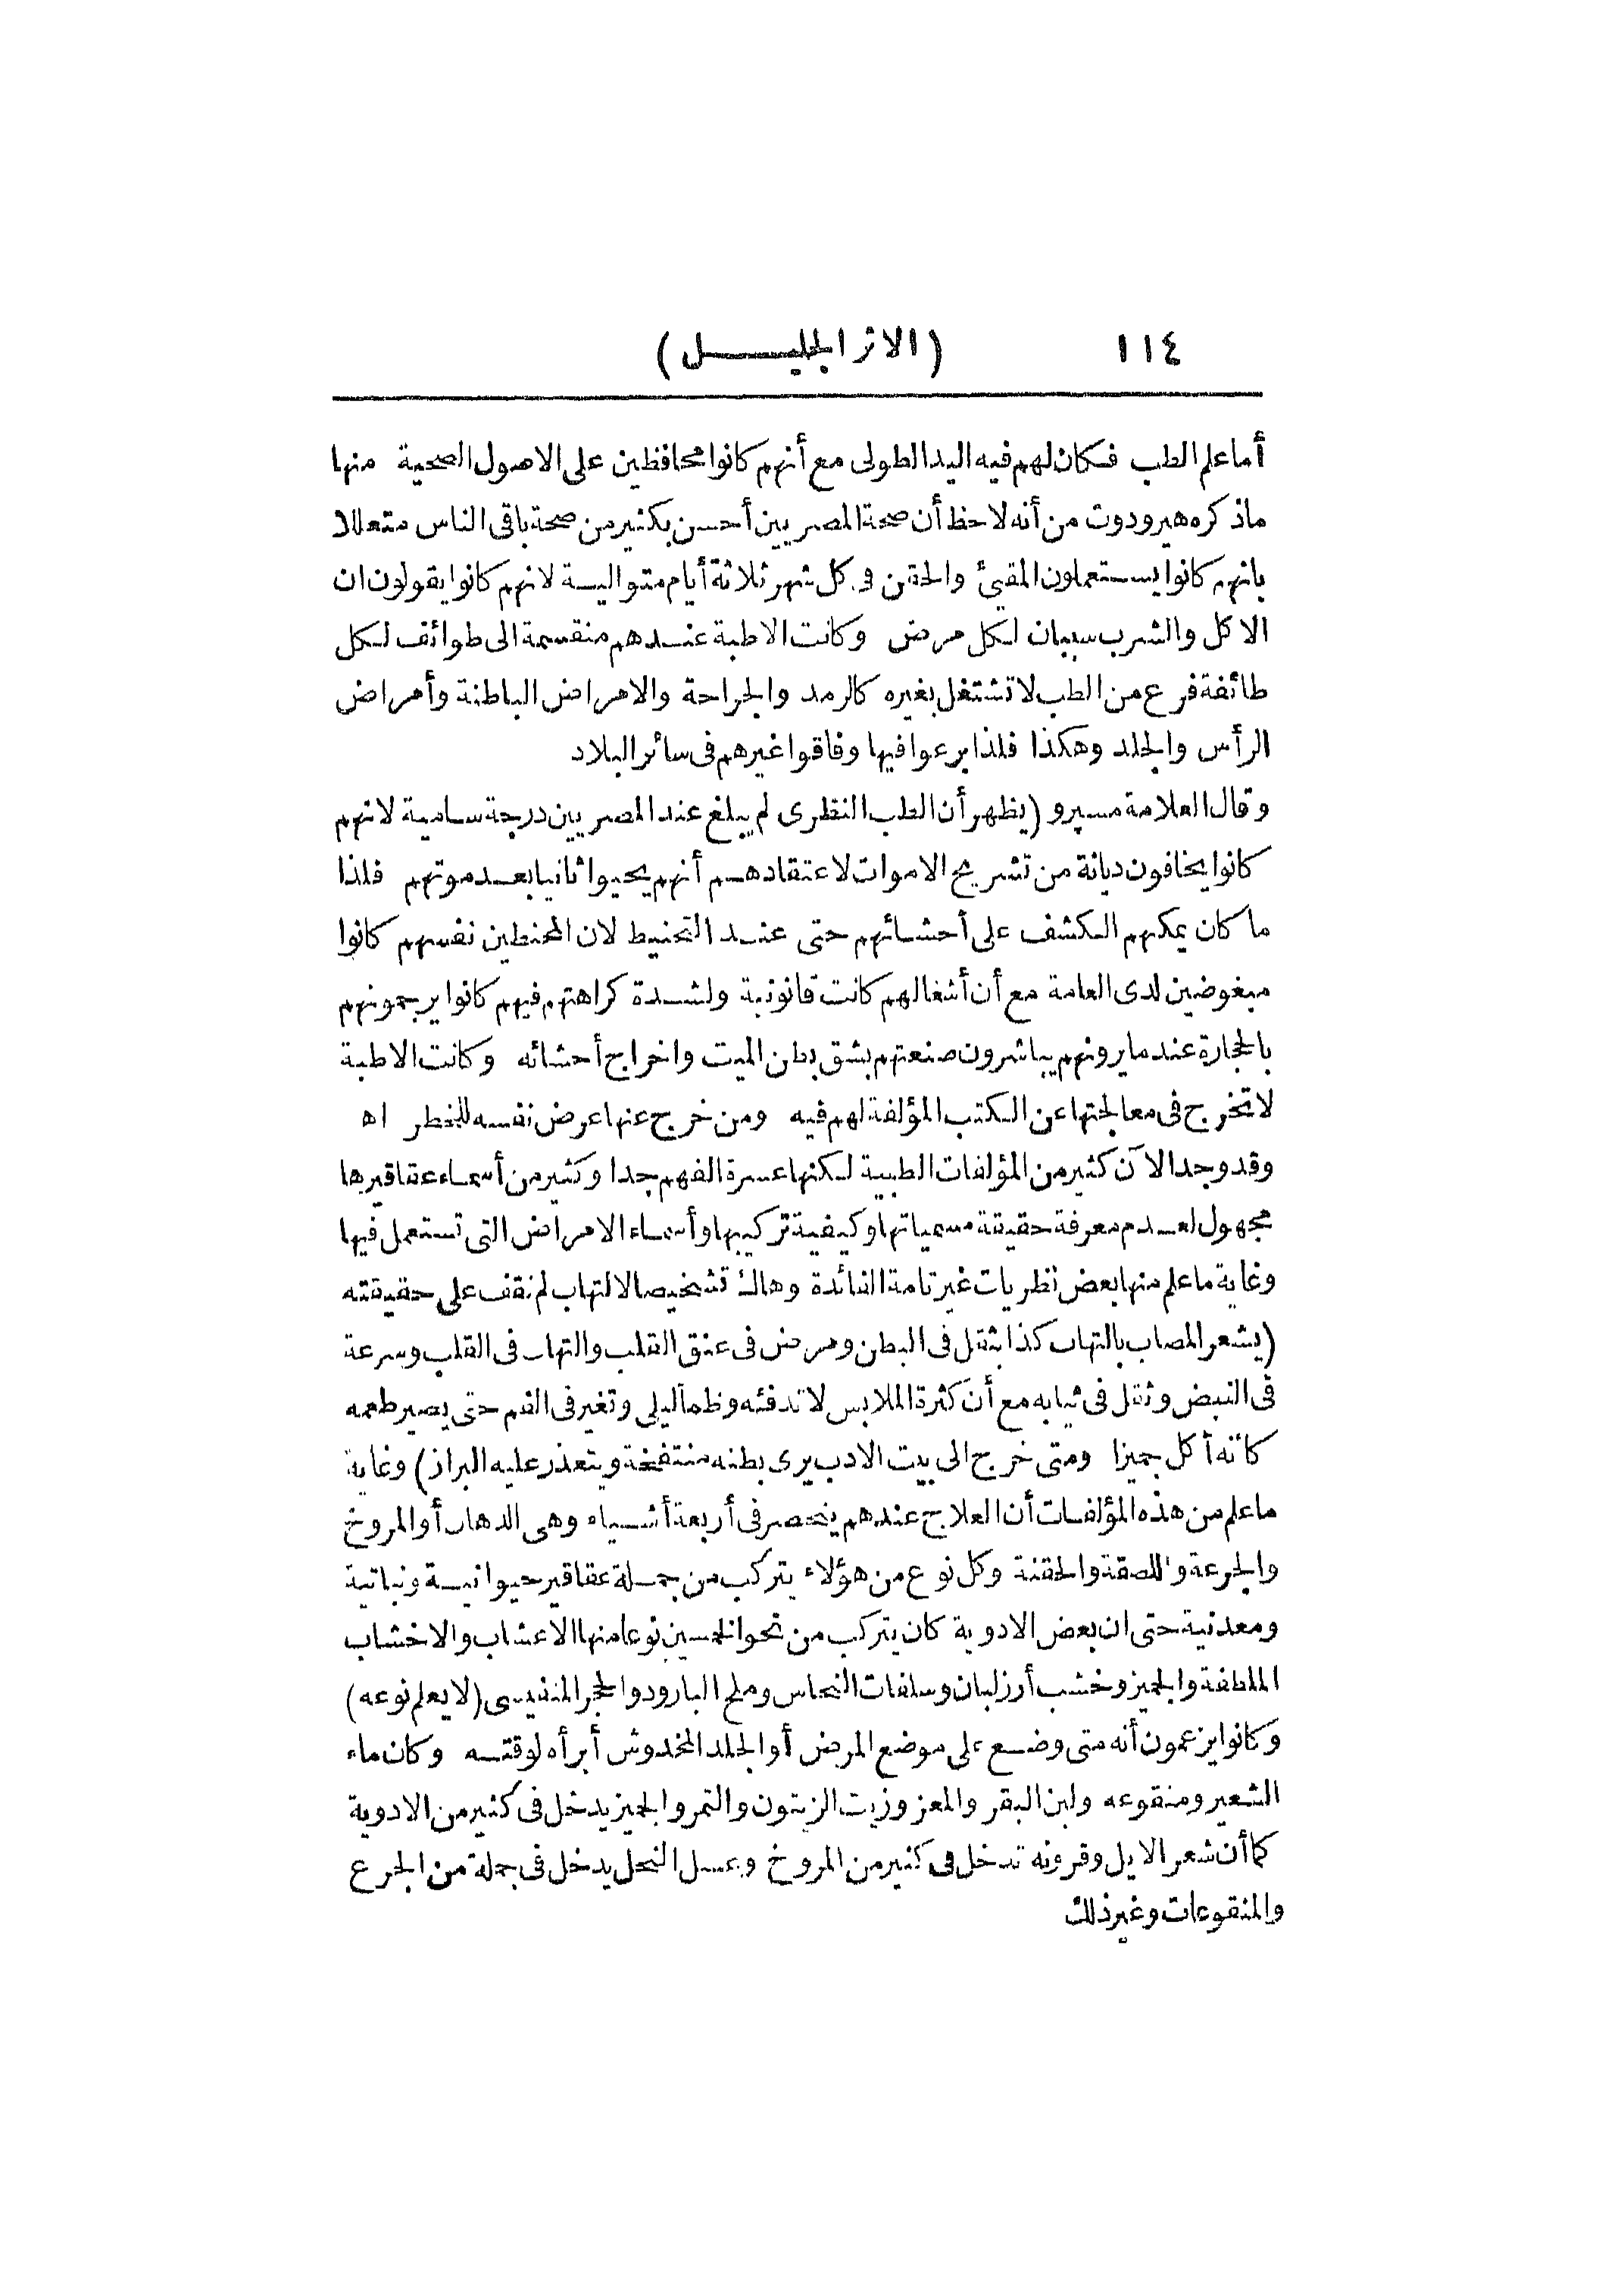 ١١٤ (الاثر الجليل)
أما علم الطب فكان لهم فيه اليد الطولى مع أنهم كانوا محافظين على الاصول الصحية منها
ماذكره هيرودوت من أنه لاحظ أن صحة المصريين أحسن بكثير من صحة باقى الناس متعللا
بانهم كانوا يستعملون المقيئ والحقن فى كل شهر ثلاثة أيام متوالية لانهم كانوا يقولون ان
الاكل والشرب سببان لكل مرض وكانت الاطبة عندهم منقسمة الى طوائف لكل
طائفة فرع من الطب لا تشتغل بغيره كالرمد والجراحة والامراض الباطنة وأمراض
الرأس والجلد وهكذا فلذا برعوا فيها وفاقوا غيرهم فى سائر البلاد
وقال العلامة مسپرو (يظهر أن الطب النظرى لم يبلغ عند المصريين درجة سامية لانهم
كانوا يخافون ديانة من تشريح الاموات لاعتقادهم أنهم يحيوا ثانيا بعد موتهم فلذا
ما كان يمكنهم الكشف على أحشائهم حتى عند التحنيط لان المحنطين نفسهم كانوا
مبغوضين لدى العامة مع أن أشغالهم كانت قانونية ولشدة كراهتهم فيهم كانوا يرجمونهم
بالحجارة عند ما يرونهم يباشرون صنعتهم بشق بطن الميت واخراج أحشائه وكانت الاطبة
لا تخرج فى معالجتها عن الكتب المؤلفة لهم فيه ومن خرج عنها عرض نفسه للخطر اه
وقد وجد الآن كثير من المؤلفات الطبية لكنها عسرة الفهم جدا وكثير من أسماء عقاقيرها
مجهول لعدم معرفة حقيقة مسمياتها وكيفية تركيبها وأسماء الامراض التى تستعمل فيها
وغاية ما علم منها بعض نظريات غير تامة الفائدة وهاك تشخيصا لالتهاب لم نقف على حقيقته
(يشعر المصاب بالتهاب كذا بثقل فى البطن ومرض فى عنق القلب والتهاب فى القلب وسرعة
فى النبض وثقل فى ثيابه مع أن كثرة الملابس لا تدفئه وظمأ ليلى وتغير فى الفم حتى يصير طعمه
كانه أكل جميزا ومتى خرج الى بيت الادب يرى بطنه منتفخة ويتعذر عليه البراز) وغاية
ما علم من هذه المؤلفات أن العلاج عندهم ينحصر فى أربعة أشياء وهى الدهان أو المروخ
والجرعة واللصقة والحقنة وكل نوع من هؤلاء يتركب من جملة عقاقير حيوانية ونباتية
ومعدنية حتى ان بعض الادوية كان يتركب من نحو الخمسين نوعا منها الاعشاب والاخشاب
الملطفة والجميز وخشب أرز لبنان وسلفات النحاس وملح البارود والحجر المنفيسى (لا يعلم نوعه)
وكانوا يزعمون أنه متى وضع على موضع المرض أو الجلد المخدوش أبرأه لوقته وكان ماء
الشعير ومنقوعه ولبن البقر والمعز وزيت الزيتون والتمر والجميز يدخل فى كثير من الادوية
كما أن شعر الايل وقرونه تدخل فى كثير من المروخ وعسل النحل يدخل فى جملة من الجرع
والمنقوعات وغير ذلك